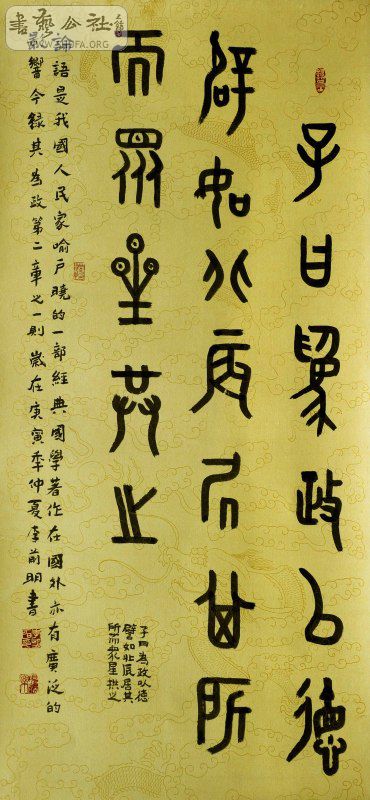 書藝公社
子曰為政以德
辟如北辰居其所
而眾星共之
子曰為政以德
譬如北辰居其
所而眾星拱之
論語是我國人民家喻戶曉的一部經典國學著作在國外亦有廣泛的
影響今錄其為政第二章之一則歲在庚寅年仲夏李前明書